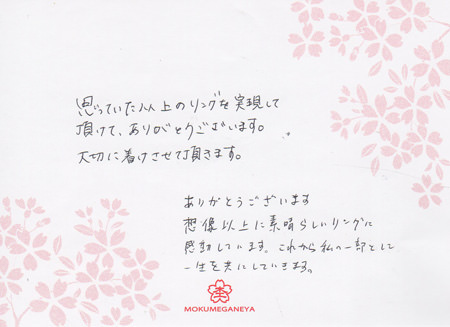 思っていた以上のリングを実現して
頂けて、ありがとうございます。
大切に着けさせて頂きます。
ありがとうございます
想像以上に素晴らしいリングに
感動しています。これから私の一部として
一生を共にしていきます。
MOKUMEGANEYA